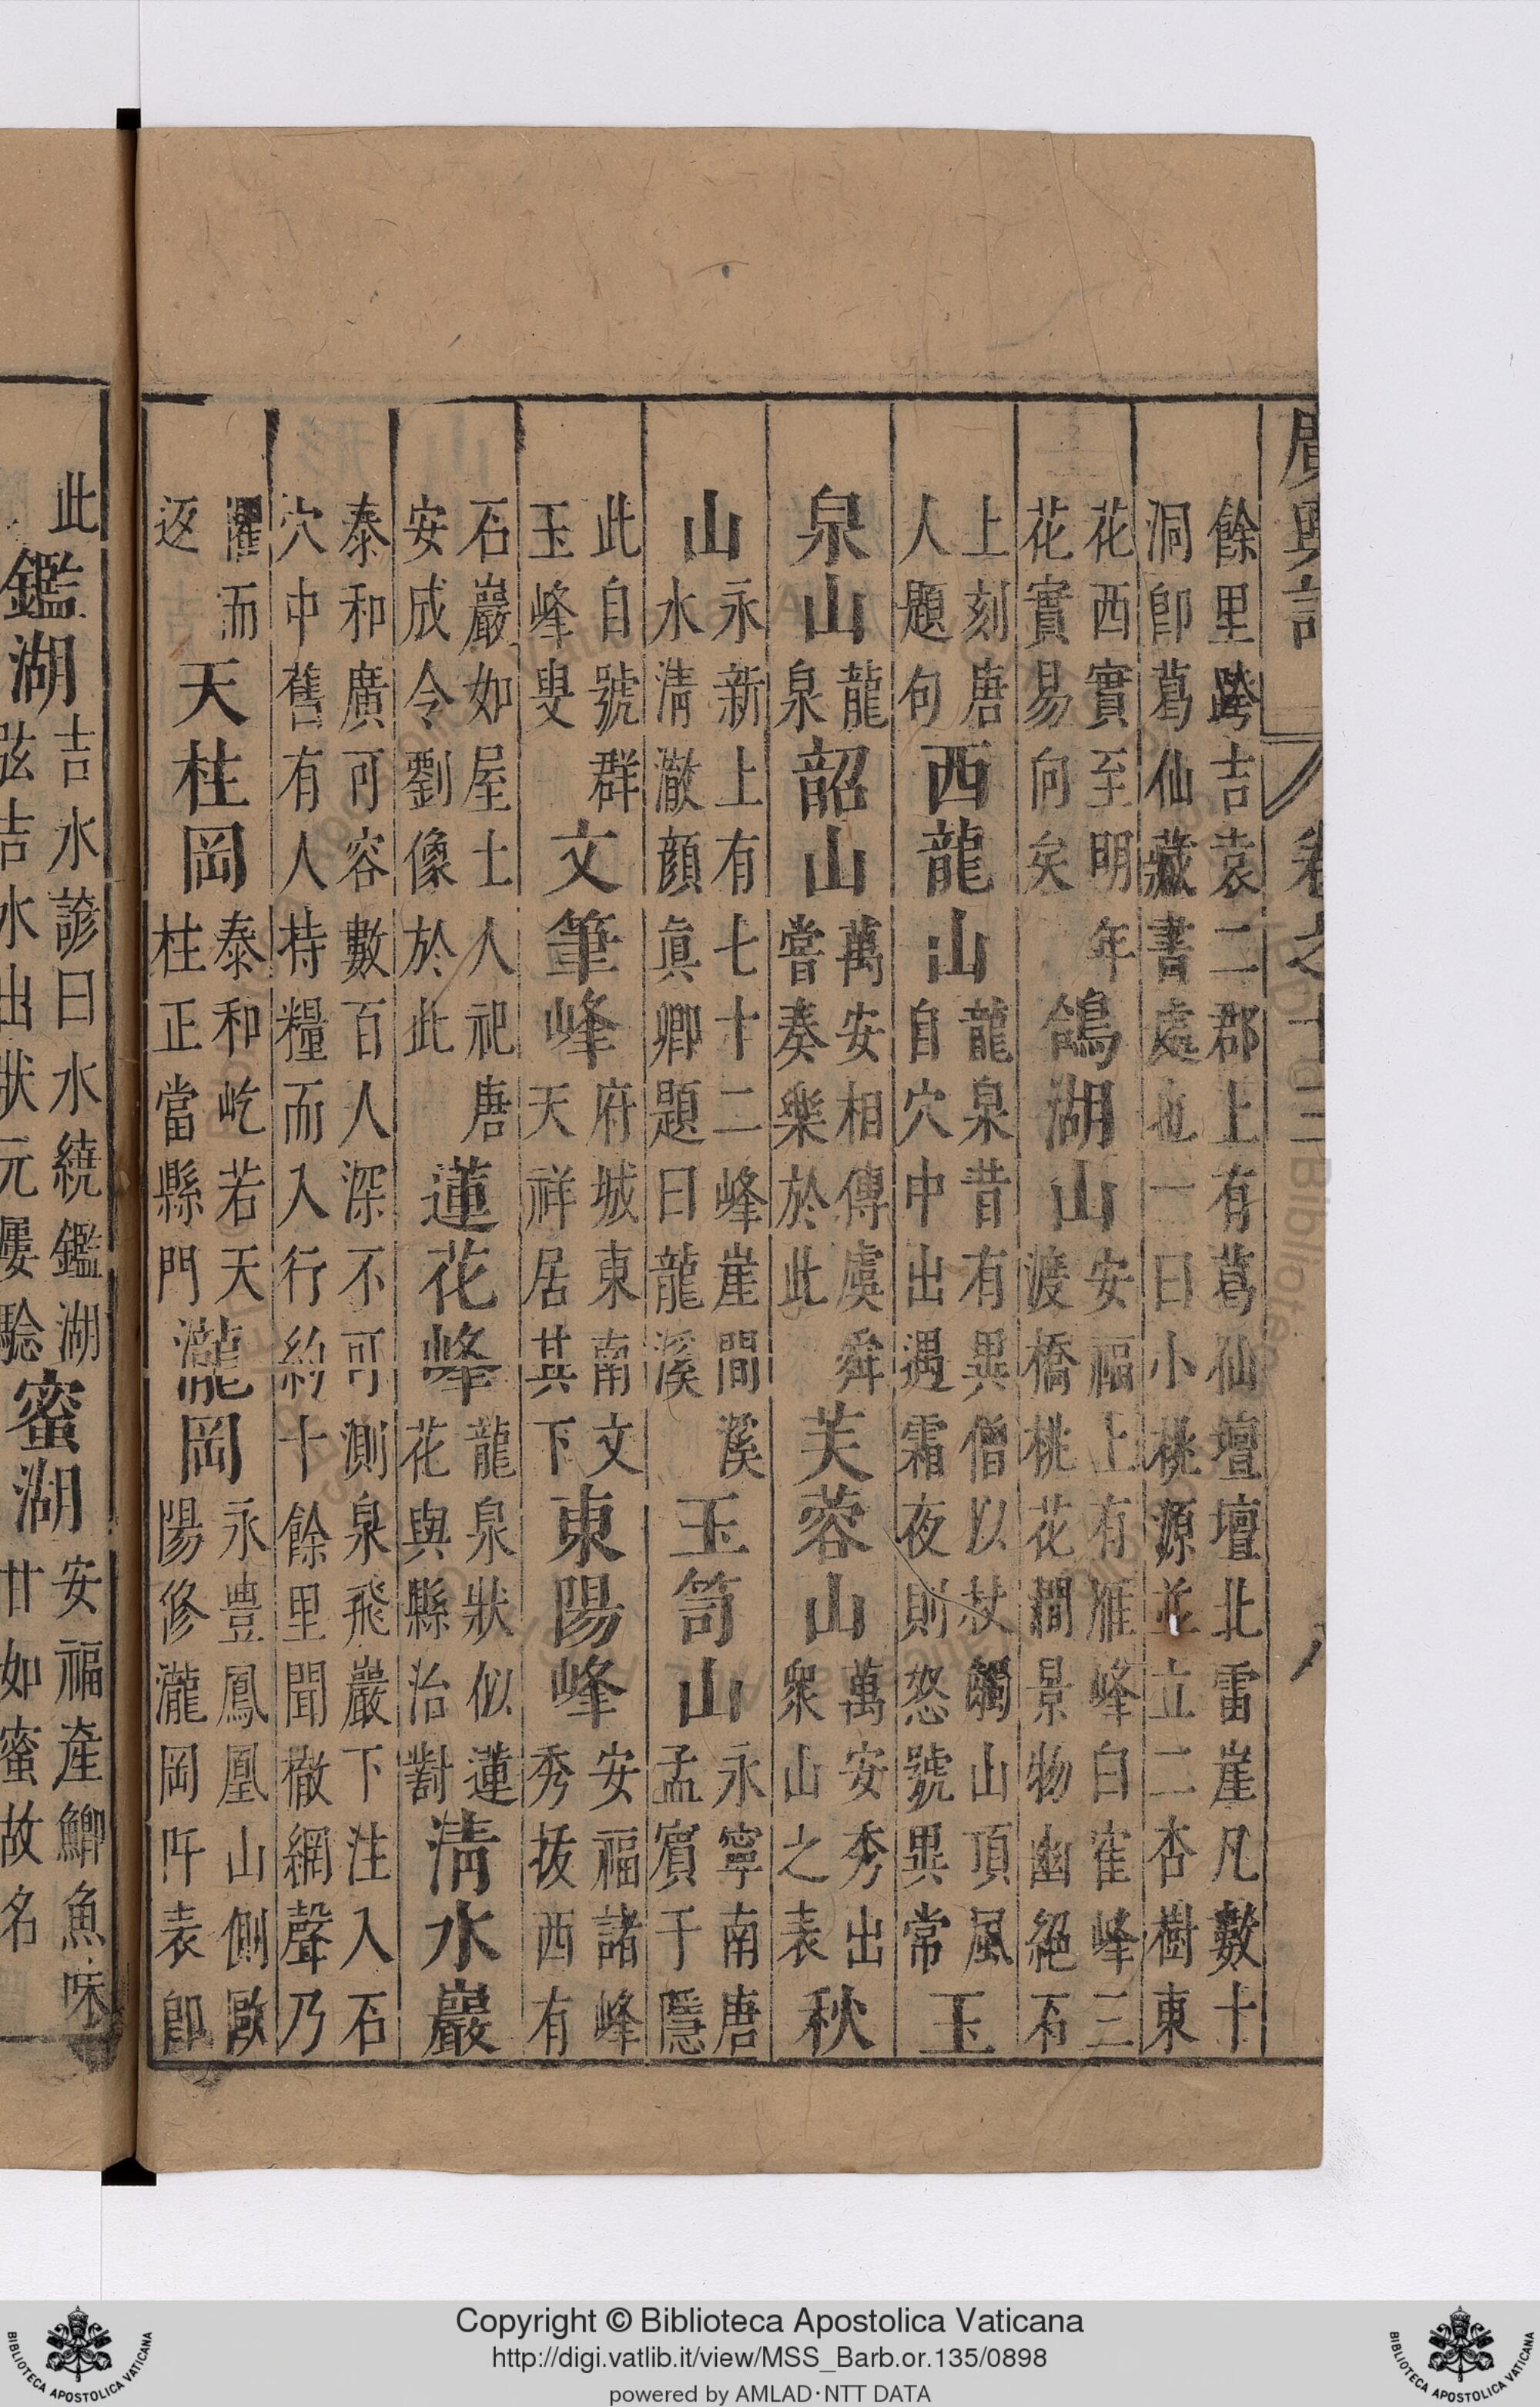 廣輿記 卷之十二 八
餘里跨吉袁二郡上有葛仙壇壇北雷崖凡數十
洞卽葛仙藏書處也一曰小桃源並立二杏樹東
花西實至明年花實易向矣鴿湖山安福上有雁峰白崔峰三渡橋桃花澗景物幽絕石
上刻唐人題句西龍山龍泉昔有異僧以杖觸山頂風自穴中出遇霜夜則怒號異常玉
泉山龍泉韶山萬安相傳虞舜嘗奏樂於此芙蓉山萬安秀出衆山之表秋
山永新上有七十二峰崖間溪水清澈顏眞卿題曰龍溪玉笥山永寧南唐孟賓于隱
此自號群玉峰叟文筆峰府城東南文天祥居其下東陽峰安福諸峰秀拔西有
石巖如屋土人祀唐安成令劉像於此蓮花峰龍泉狀似蓮花與縣治對清水巖
泰和廣可容數百人深不可測泉飛巖下注入石
穴中舊有人持糧而入行約十餘里聞撤網聲乃
懼而返天柱岡泰和屹若天柱正當縣門瀧岡永豐鳳凰山側歐陽修瀧岡阡表卽
此鑑湖吉水諺曰水繞鑑湖弦吉水出狀元屢驗蜜湖安福產鯽魚味甘如蜜故名
Copyright © Biblioteca Apostolica Vaticana
http://digi.vatlib.it/view/MSS_Barb.or.135/0898
powered by AMLAD·NTT DATA
BIBLIOTECA APOSTOLICA VATICANA
BIBLIOTECA APOSTOLICA VATICANA